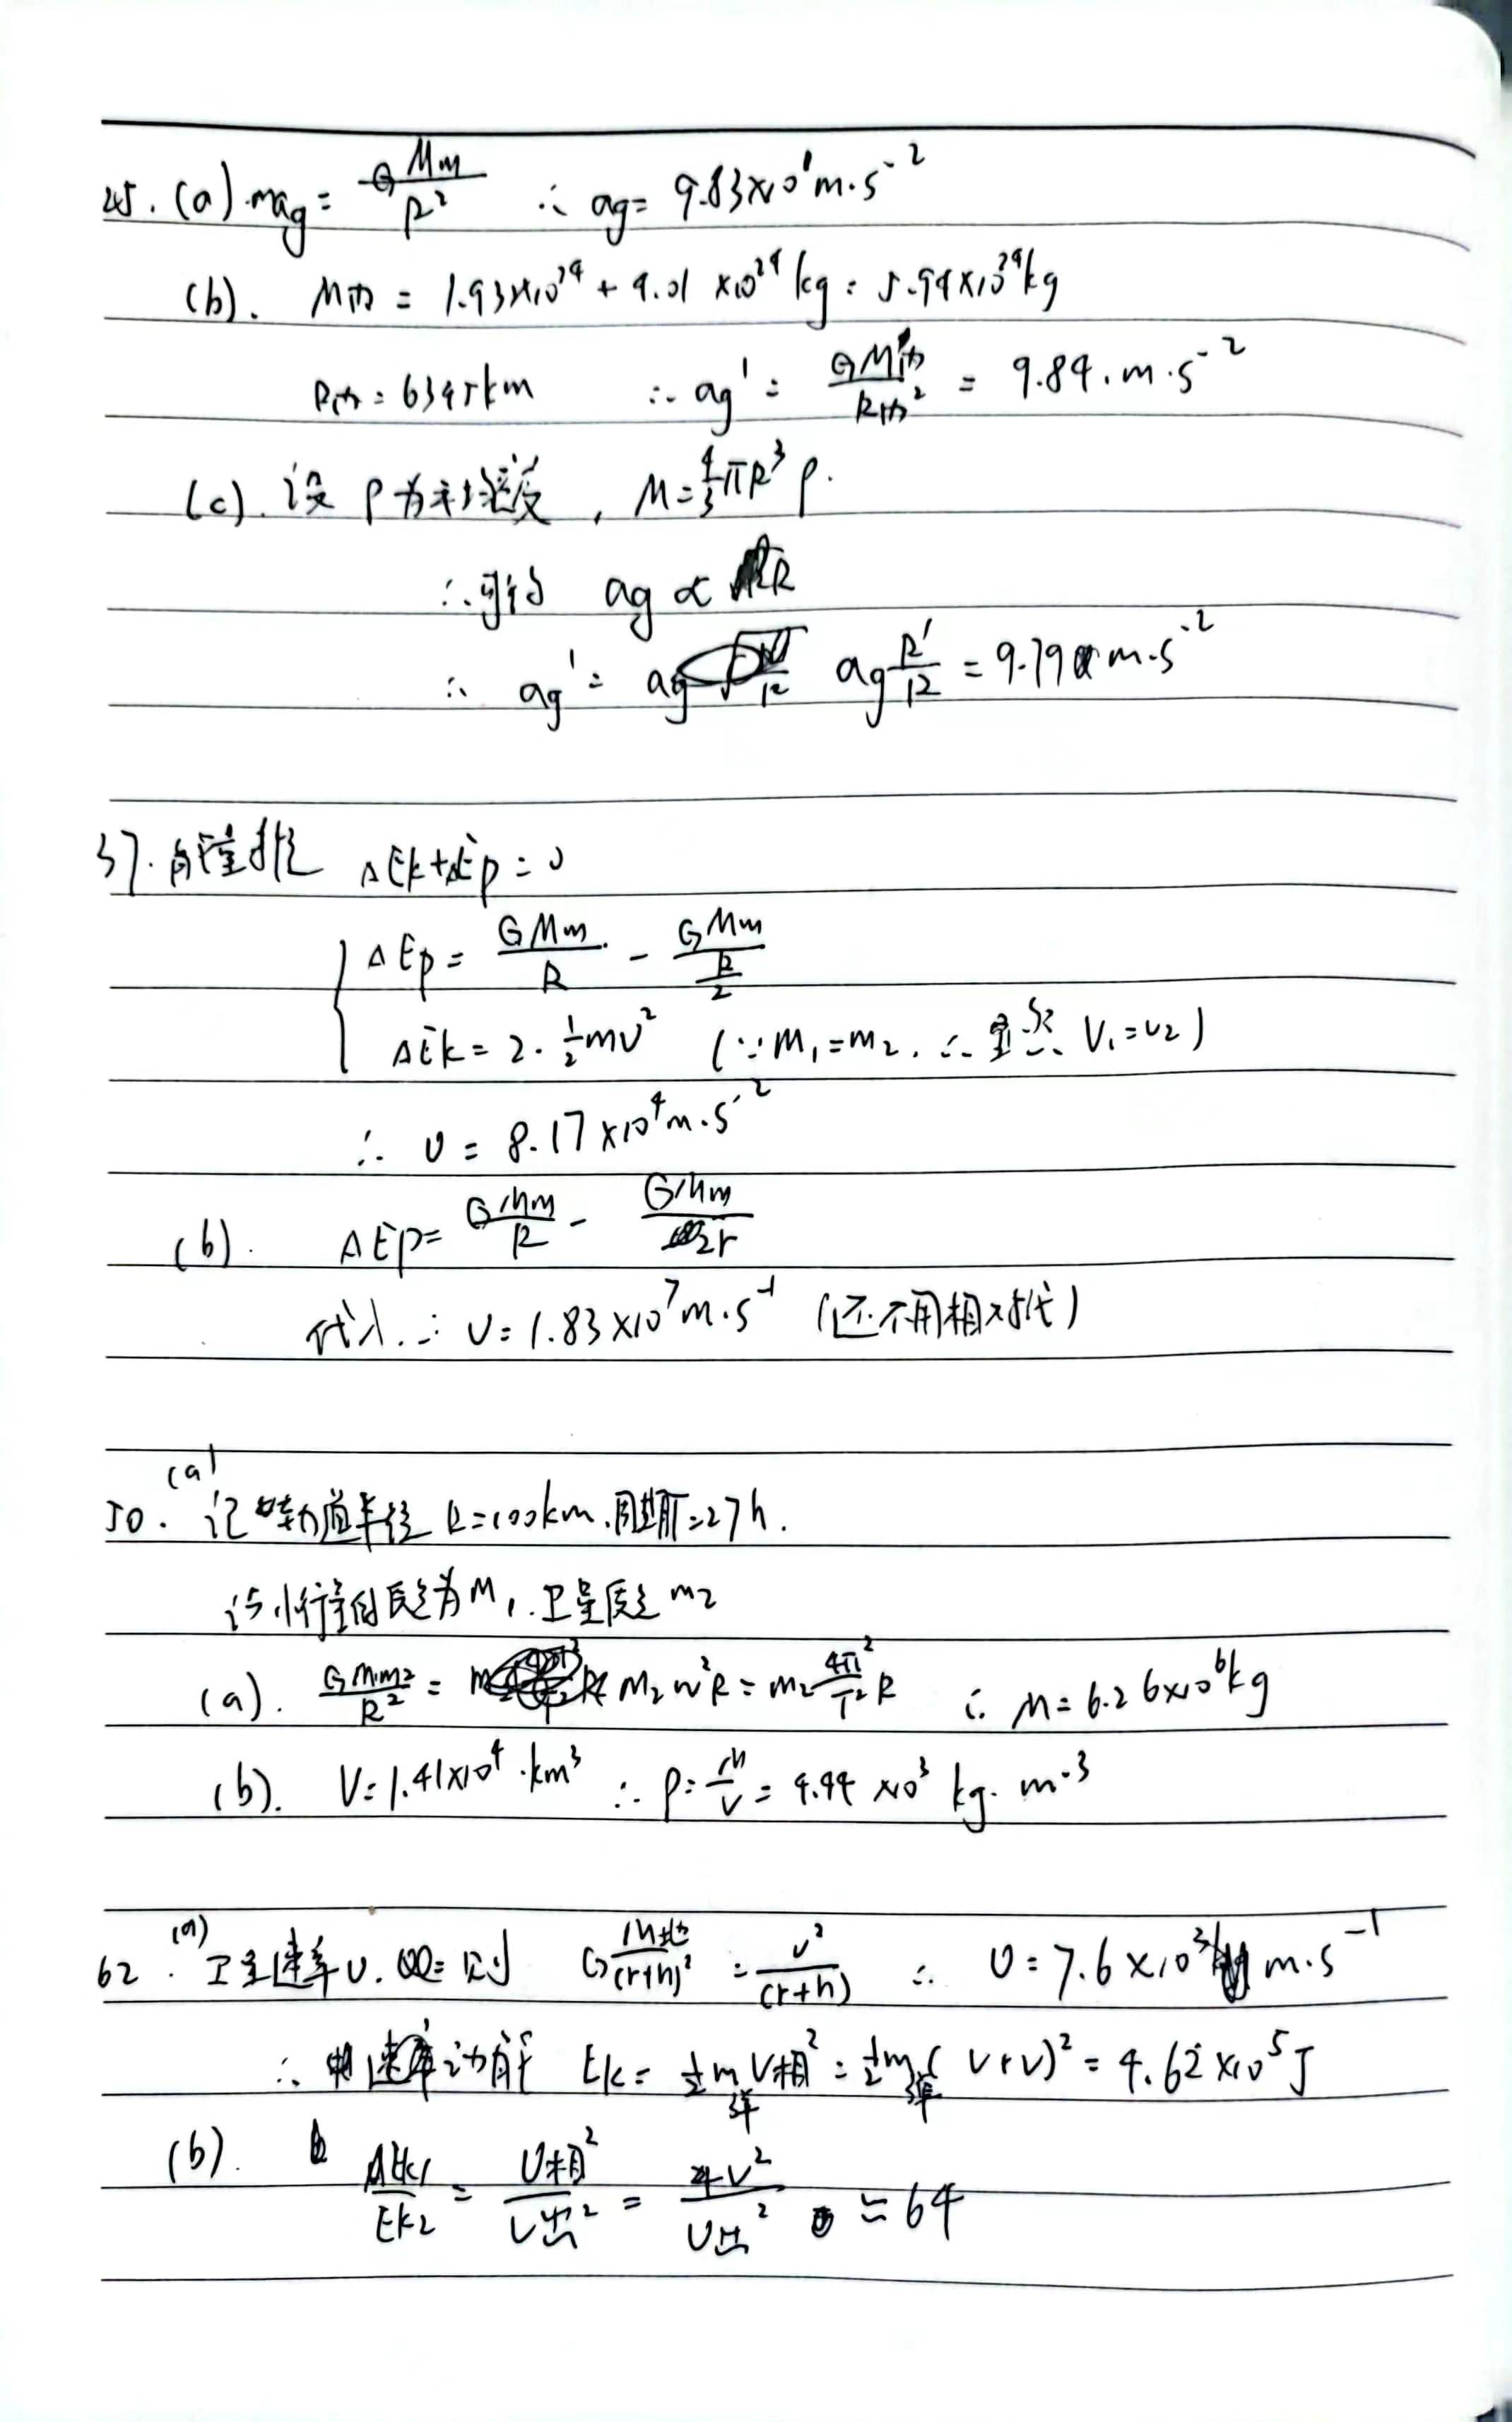 25. (a) mag = G Mm / R² ∴ ag = 9.83×10¹ m·s⁻²
(b). M内 = 1.93×10²⁴ + 4.01×10²⁴ kg = 5.94×10²⁴ kg
R内 = 6345km ∴ ag' = GM内 / R内² = 9.84 m·s⁻²
(c). 设 ρ为平均密度, M = 4/3 πR³ρ.
∴可得 ag ∝ R
∴ ag' = ag R'/R = 9.79 m·s⁻²
37. 能量守恒 ΔEk+ΔEp=0
ΔEp = GMm/R - GMm/(R/2)
ΔEk = 2·½mv² (∵m₁=m₂, ∴显然 V₁=v₂)
∴ v = 8.17×10⁴ m·s⁻²
(b). ΔEp = GMm/R - GMm/2r
代入. ∴ v = 1.83×10⁷ m·s⁻¹ (还不用相对论)
(a)
50. 记轨道半径 R=100km, 周期T=27h.
设小行星的质量为M₁, 卫星质量 m₂
(a). GM₁m₂/R² = m₂w²R = m₂ 4π²/T² R ∴ M = 6.26×10⁶ kg
(b). V = 1.41×10⁴·km³ ∴ ρ = M/V = 4.44×10³ kg·m⁻³
(a)
62. 卫星速率v. 则 G M地/(r+h)² = v²/(r+h) ∴ v = 7.6×10³ m·s⁻¹
∴ 动能 Ek = ½m弹 V相² = ½m弹(v+v)² = 4.62×10⁵ J
(b). Ek1/Ek2 = V相²/V出² = 4v²/V出² ≈ 64